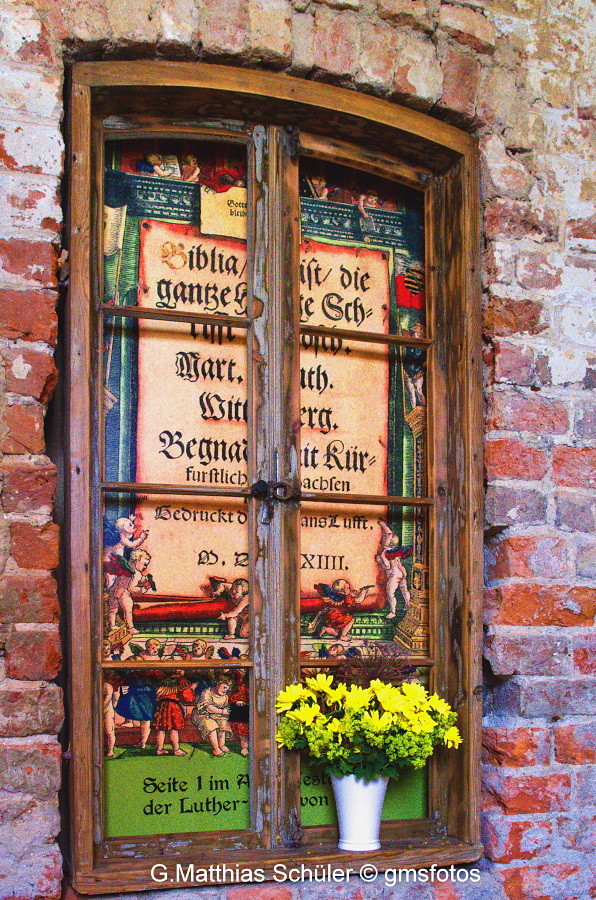 Gotte
bleibe
Biblia/ ist/ die
gantze H ke Sch-
Mart. uth.
Witt erg.
Begnad it Kür-
furstlich achsen
Gedruckt d ans Lufft.
M. D XIIII.
Seite 1 im A est
der Luther- von
G.Matthias Schüler © gmsfotos